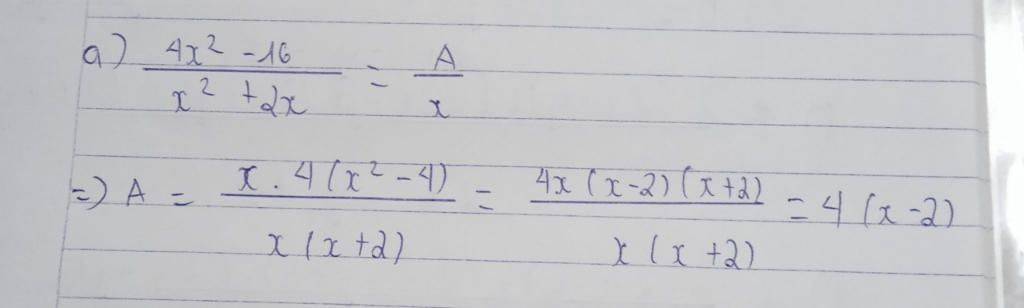 a) (4x² - 16)/(x² + 2x) = A/x
=) A = (x . 4(x² - 4))/(x(x+2)) = (4x(x-2)(x+2))/(x(x+2)) = 4(x-2)